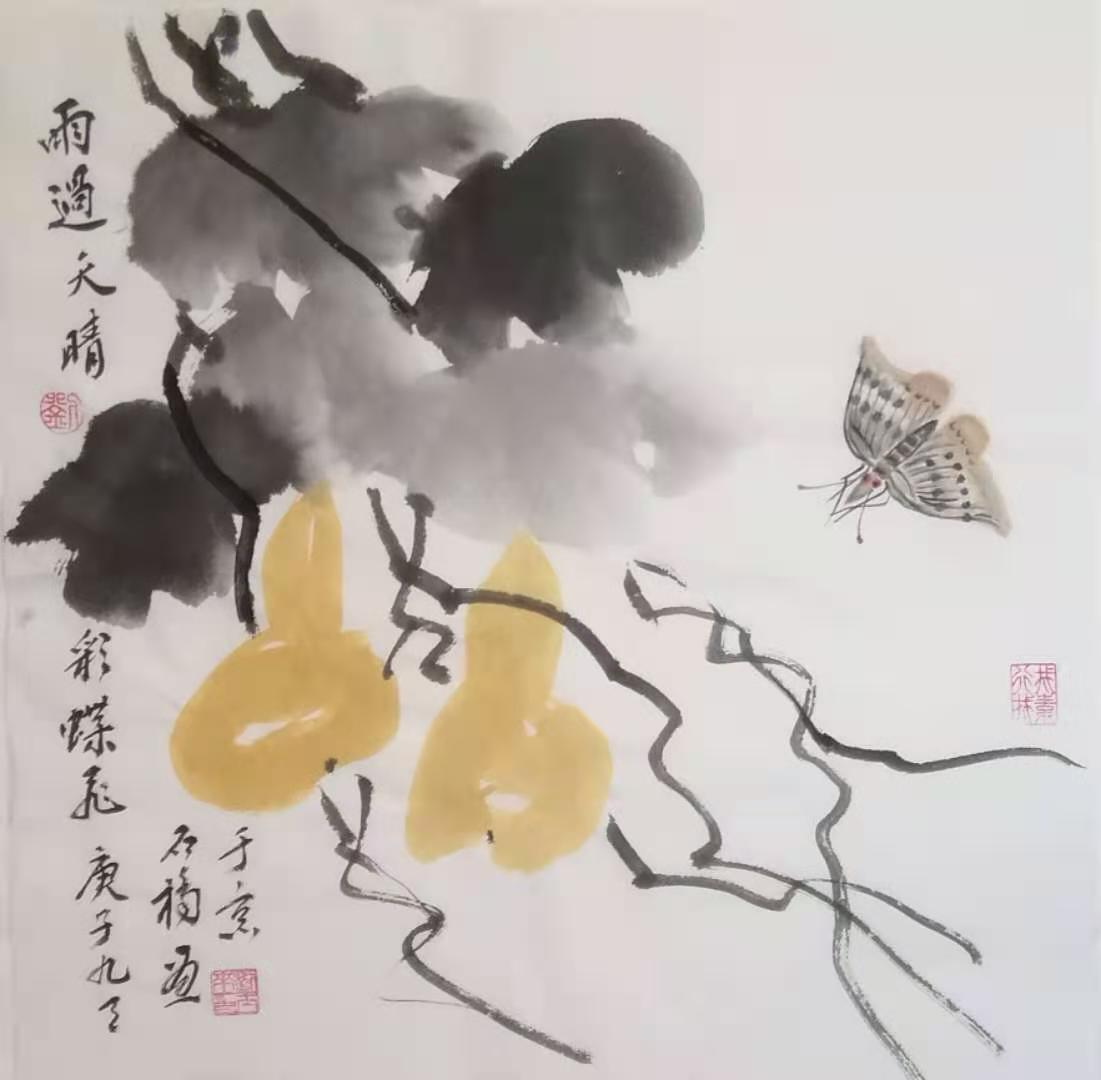 雨過天晴
彩蝶飛
庚子九月
石福画
于京